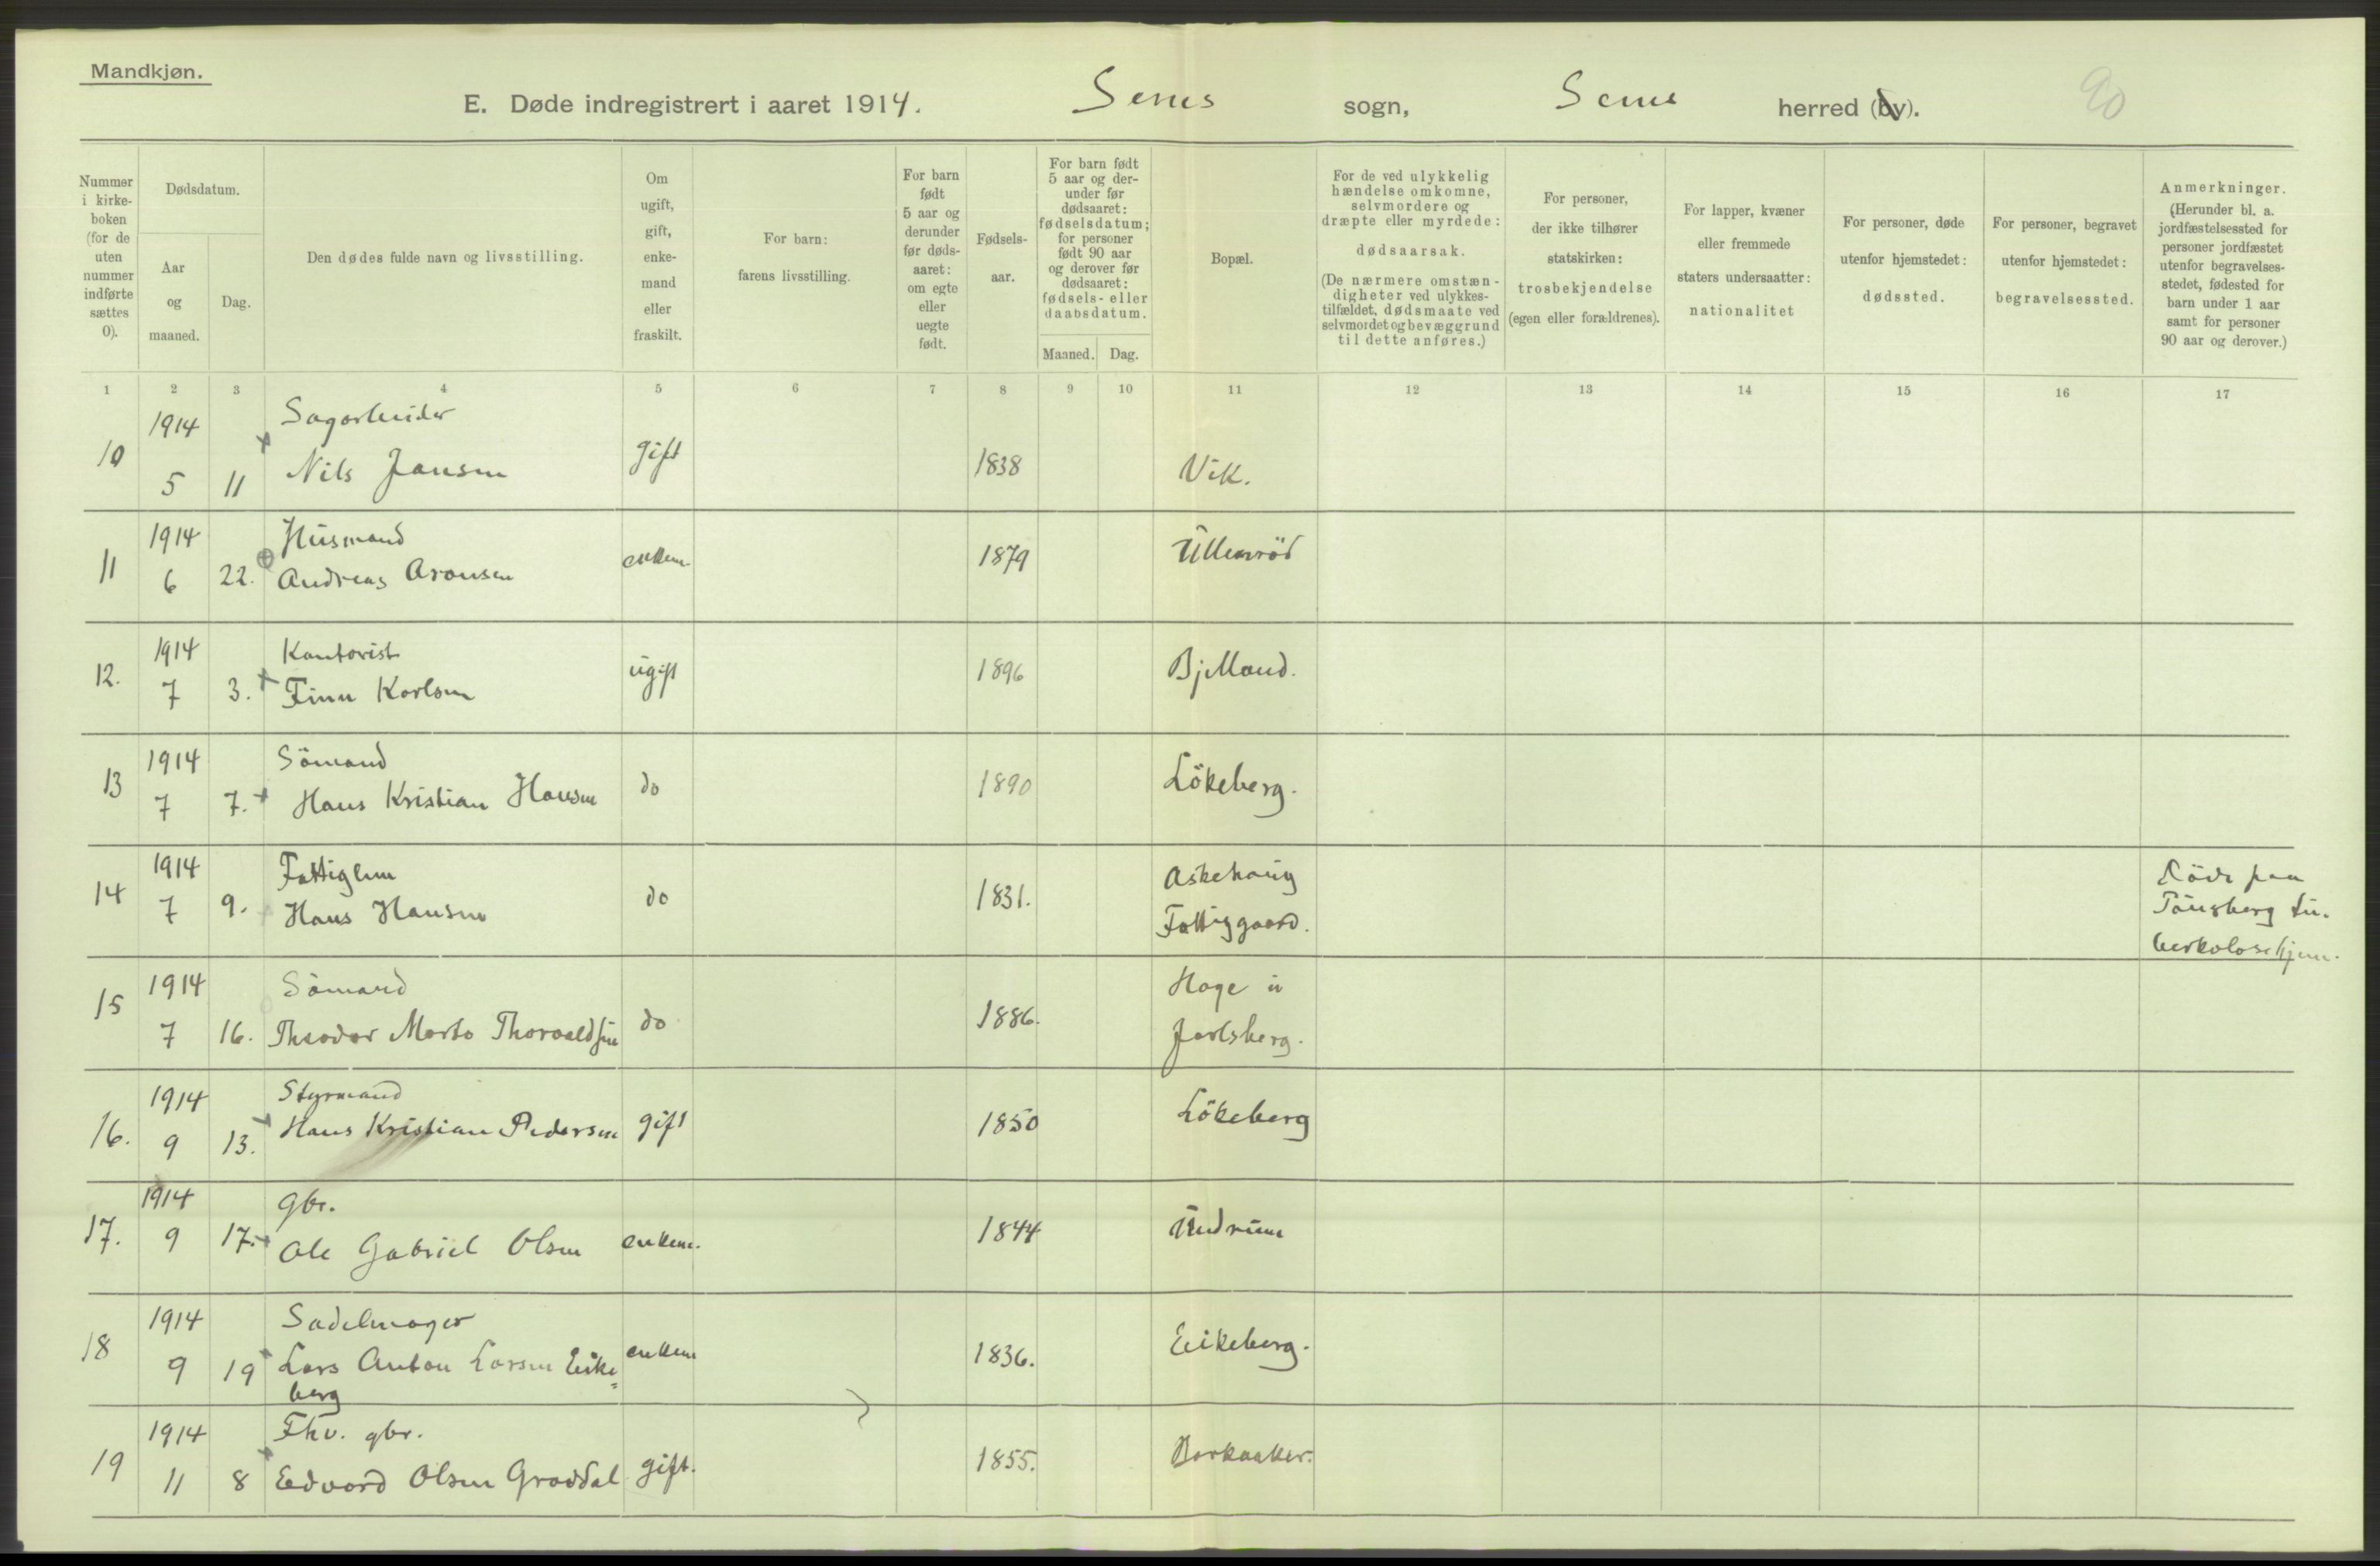 Mandkjøn.
E. Døde indregistrert i aaret 1914. Sems sogn, Sems herred (by).
90
Nummer i kirke-boken (for de uten nummer indførte sættes 0).
Dødsdatum.
Aar og maaned.
Dag.
Den dødes fulde navn og livsstilling.
Om ugift, gift, enke-mand eller fraskilt.
For barn: farens livsstilling.
For barn født 5 aar og derunder før døds-aaret: om egte eller uegte født.
Fødsels-aar.
For barn født 5 aar og der-under før dødsaaret: fødselsdatum; for personer født 90 aar og derover før dødsaaret: fødsels- eller daabsdatum.
Maaned. Dag.
Bopæl.
For de ved ulykkelig hændelse omkomne, selvmordere og dræpte eller myrdede: dødsaarsak. (De nærmere omstæn-digheter ved ulykkes-tilfældet, dødsmaate ved selvmordet og bevæggrund til dette anføres.)
For personer, der ikke tilhører statskirken: trosbekjendelse (egen eller forældrenes).
For lapper, kvæner eller fremmede staters undersaatter: nationalitet
For personer, døde utenfor hjemstedet: dødssted.
For personer, begravet utenfor hjemstedet: begravelsessted.
Anmerkninger. (Herunder bl. a. jordfæstelsessted for personer jordfæstet utenfor begravelses-stedet, fødested for barn under 1 aar samt for personer 90 aar og derover.)
1 2 3 4 5 6 7 8 9 10 11 12 13 14 15 16 17
1914 Sagarbeider
10 5 11 Nils Jansen gift 1838 Vik.
1914 Husmand
11 6 22. Andreas Aronsen enkem. 1879 Ullenröd
1914 Kontorist
12. 7 3. Finn Karlsen ugift 1896 Bjelland.
1914 Sömand
13 7 7. Hans Kristian Hansen do 1890 Lökeberg.
1914 Fattiglem Askehaug Döde paa
14 7 9. Hans Hansen do 1831. Fattiggaard. Tönsberg tu-
berkolosehjem.
1914 Sömand Hage u
15 7 16. Theodor Marto Thorvaldsen do 1886. Jarlsberg.
1914 Styrmand
16. 9 13. Hans Kristian Pedersen gift 1850 Lökeberg
1914 gbr.
17. 9 17. Ole Gabriel Olsen enkem. 1844 Undrum
1914 Sadelmager
18 9 19 Lars Anton Larsen Eike= enkem 1836. Eikeberg.
berg
1914 Fhv. gbr.
19 11 8 Edvard Olsen Gravdal gift. 1855. Barkaaker.